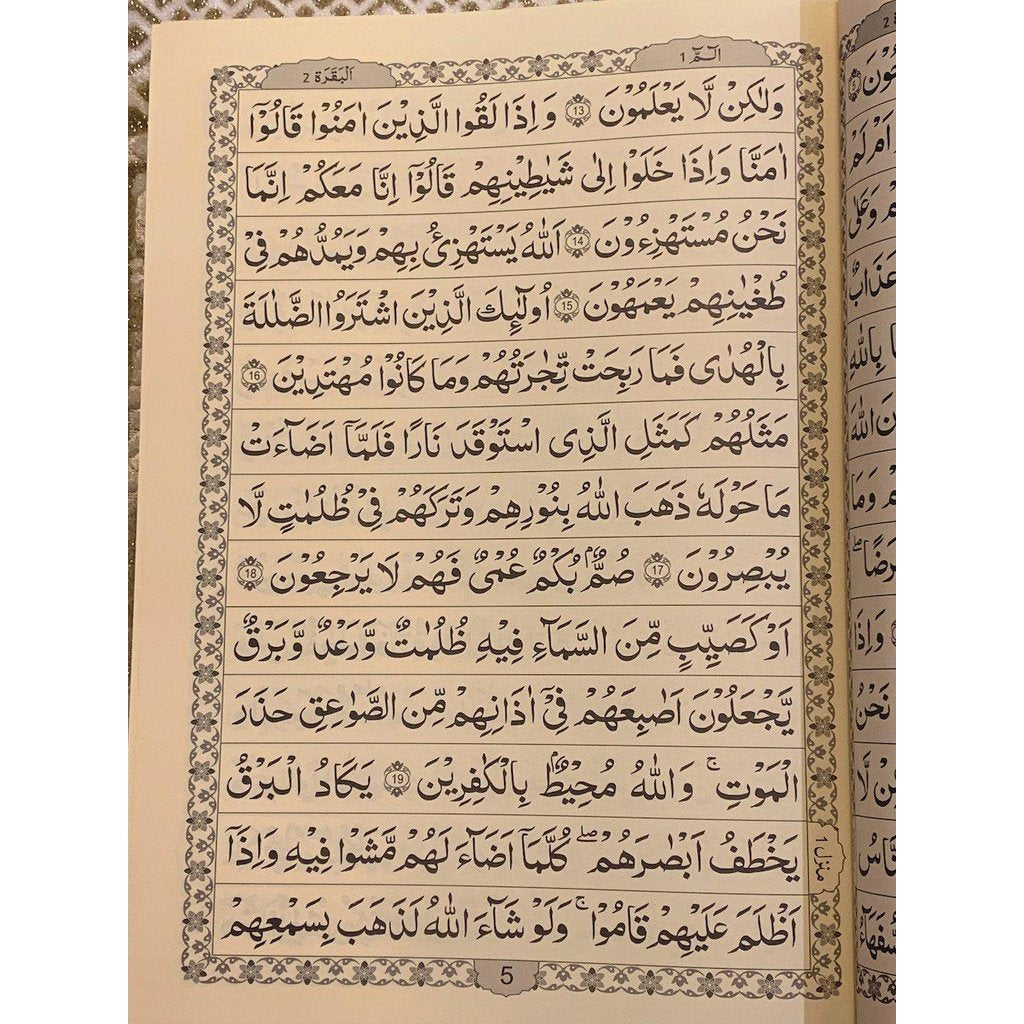 الٓمّٓ 1
اَلْبَقَرَة 2
وَلٰكِنْ لَّا يَعْلَمُوْنَ 13 وَاِذَا لَقُوا الَّذِيْنَ اٰمَنُوْا قَالُوْٓا
اٰمَنَّا وَاِذَا خَلَوْا اِلٰى شَيٰطِيْنِهِمْ قَالُوْٓا اِنَّا مَعَكُمْ اِنَّمَا
نَحْنُ مُسْتَهْزِءُوْنَ 14 اَللّٰهُ يَسْتَهْزِئُ بِهِمْ وَيَمُدُّهُمْ فِيْ
طُغْيٰنِهِمْ يَعْمَهُوْنَ 15 اُولٰٓئِكَ الَّذِيْنَ اشْتَرَوُا الضَّلٰلَةَ
بِالْهُدٰى فَمَا رَبِحَتْ تِّجٰرَتُهُمْ وَمَا كَانُوْا مُهْتَدِيْنَ 16
مَثَلُهُمْ كَمَثَلِ الَّذِى اسْتَوْقَدَ نَارًا فَلَمَّآ اَضَآءَتْ
مَا حَوْلَهٗ ذَهَبَ اللّٰهُ بِنُوْرِهِمْ وَتَرَكَهُمْ فِيْ ظُلُمٰتٍ لَّا
يُبْصِرُوْنَ 17 صُمٌّۢ بُكْمٌ عُمْيٌ فَهُمْ لَا يَرْجِعُوْنَ 18
اَوْ كَصَيِّبٍ مِّنَ السَّمَآءِ فِيْهِ ظُلُمٰتٌ وَّرَعْدٌ وَّبَرْقٌ
يَّجْعَلُوْنَ اَصٰبِعَهُمْ فِيْٓ اٰذَانِهِمْ مِّنَ الصَّوَاعِقِ حَذَرَ
الْمَوْتِ ۚ وَاللّٰهُ مُحِيْطٌۢ بِالْكٰفِرِيْنَ 19 يَكَادُ الْبَرْقُ
يَخْطَفُ اَبْصٰرَهُمْ ۖ كُلَّمَآ اَضَآءَ لَهُمْ مَّشَوْا فِيْهِ وَاِذَآ
اَظْلَمَ عَلَيْهِمْ قَامُوْا ۚ وَلَوْ شَآءَ اللّٰهُ لَذَهَبَ بِسَمْعِهِمْ
منزل 1
5
اَمْ لَمْ
عَذَابٌ
بِاللّٰهِ
وَاِذَا
نَحْنُ